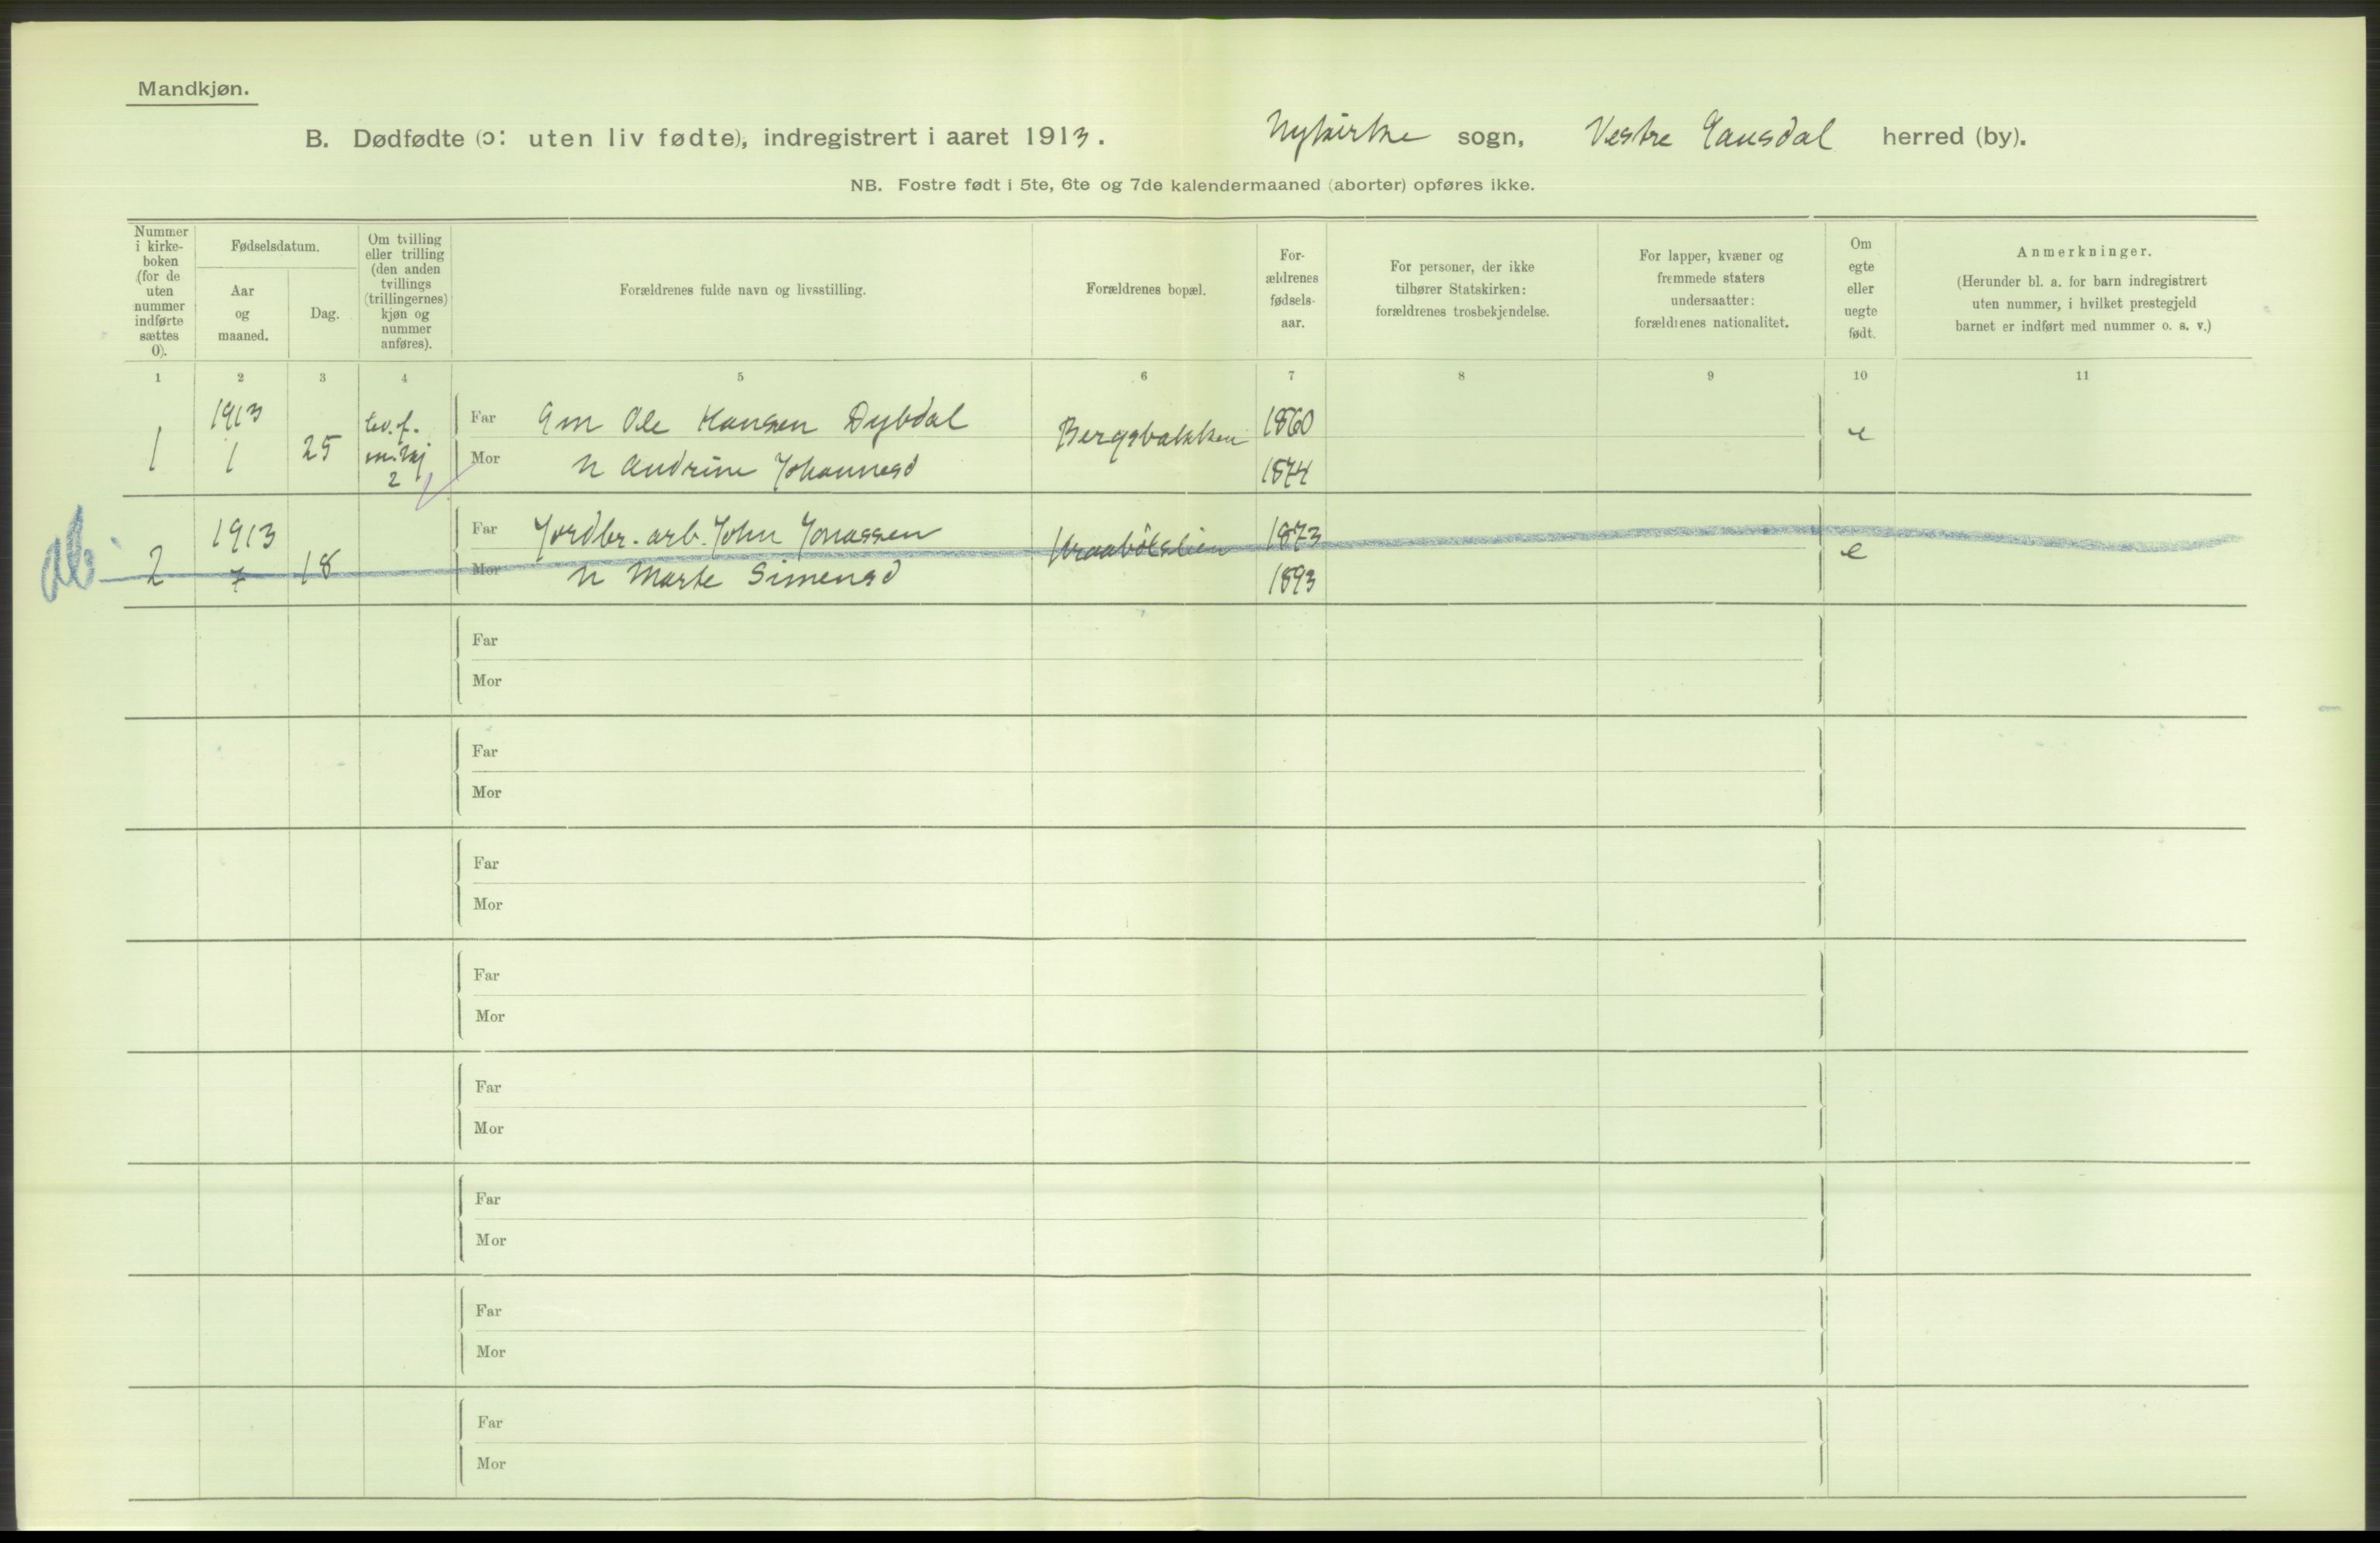 Mandkjøn.
B. Dødfødte (ɔ: uten liv fødte), indregistrert i aaret 1913. Nykirke sogn, Vestre Gausdal herred (by).
NB. Fostre født i 5te, 6te og 7de kalendermaaned (aborter) opføres ikke.
Nummer i kirke-boken (for de uten nummer indførte sættes 0).
Fødselsdatum.
Aar og maaned.
Dag.
Om tvilling eller trilling (den anden tvillings (trillingernes) kjøn og nummer anføres).
Forældrenes fulde navn og livsstilling.
Forældrenes bopæl.
For-ældrenes fødsels-aar.
For personer, der ikke tilhører Statskirken: forældrenes trosbekjendelse.
For lapper, kvæner og fremmede staters undersaatter: forældrenes nationalitet.
Om egte eller uegte født.
Anmerkninger.
(Herunder bl. a. for barn indregistrert uten nummer, i hvilket prestegjeld barnet er indført med nummer o. s. v.)
1 2 3 4 5 6 7 8 9 10 11
1 1913 1 25 tv. f. 2
Far Gm Ole Hansen Dybdal Bergsbakken 1860 e
Mor n Andrine Johannesd 1874
2 1913 7 18
Far Jordbr. arb. John Jonassen 1873 e
Mor n Marte Simensd 1893
Far
Mor
Far
Mor
Far
Mor
Far
Mor
Far
Mor
Far
Mor
Far
Mor
Far
Mor